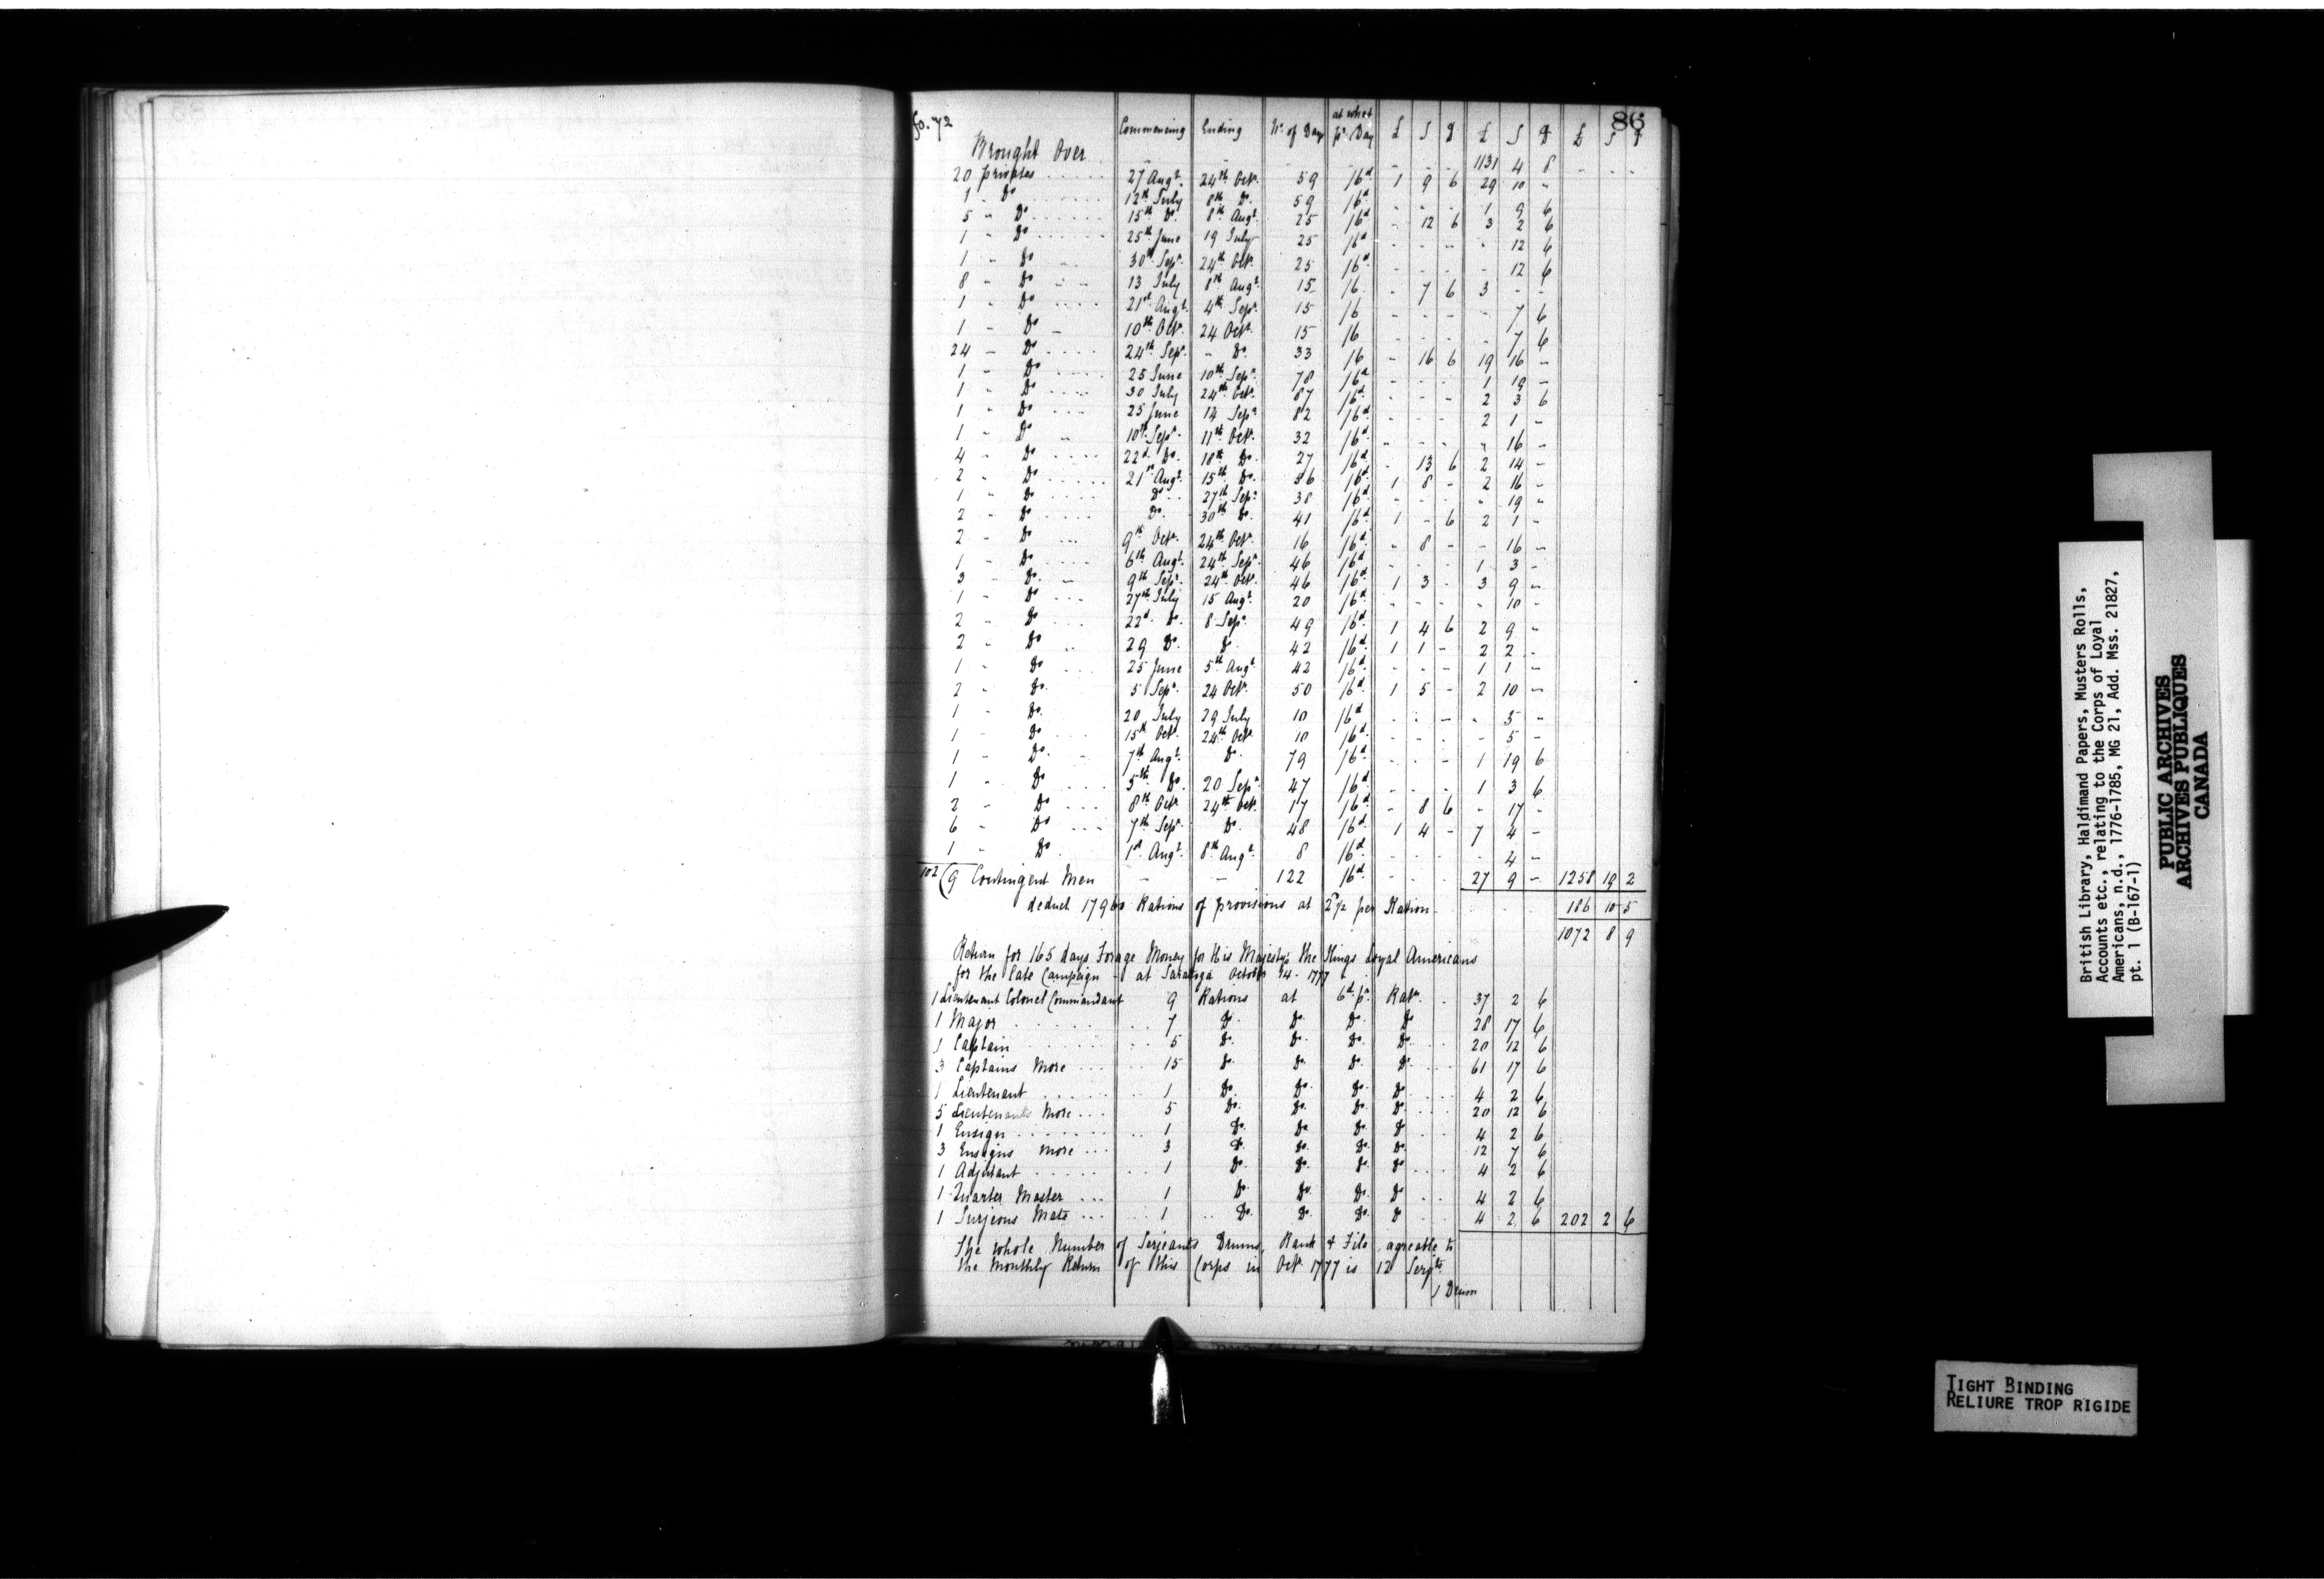 86
fo. 72
Commencing Ending No. of Days at what pr. Day £ S d £ S d £ S d
Brought Over - - - - - - - 1131 4 8 - - -
20 privates 27 Augt. 24th Octr. 59 16d 1 9 6 29 10 -
1 - Do 12th July 8th Do. 59 16d - - - 1 9 6
5 - Do 15th Do. 8th Augt. 25 16d - 12 6 3 2 6
1 - Do 25th June 19 July 25 16d - - - - 12 6
1 - Do 30th Sepr. 24th Octr. 25 16d - - - - 12 6
8 - Do 13 July 8th Augt. 15 16 - 7 6 3 - -
1 - Do 21st Augt. 4th Sepr. 15 16 - - - - 7 6
1 - Do 10th Octr. 24 Octr. 15 16 - - - - 7 6
24 - Do 24th Sepr. - Do. 33 16 - 16 6 19 16 -
1 - Do 25 June 10th Sepr. 78 16d - - - 1 19 -
1 - Do 30 July 24th Octr. 87 16d - - - 2 3 6
1 - Do 25 June 14 Sepr. 82 16d - - - 2 1 -
1 - Do 10th Sepr. 11th Octr. 32 16d - - - - 16 -
4 - Do 22d. Do. 18th Do. 27 16d - 13 6 2 14 -
2 - Do 21st Augt. 15th Do. 56 16d 1 8 - 2 16 -
1 - Do Do 27th Sepr. 38 16d - - - - 19 -
2 - Do Do. 30th Do. 41 16d 1 - 6 2 1 -
2 - Do 9th Octr. 24th Octr. 16 16d - 8 - - 16 -
1 - Do 6th Augt. 24th Sepr. 46 16d - - - 1 3 -
3 - Do. 9th Sepr. 24th Octr. 46 16d 1 3 - 3 9 -
1 - Do 27th July 15 Augt. 20 16d - - - - 10 -
2 - Do 22d. Do. 8 Sepr. 49 16d 1 4 6 2 9 -
2 - Do 29 Do. Do 42 16d 1 1 - 2 2 -
1 - Do 25 June 5th Augt. 42 16d - - - 1 1 -
2 - Do. 5 Sepr. 24 Octr. 50 16d 1 5 - 2 10 -
1 - Do. 20 July 29 July 10 16d - - - - 5 -
1 - Do. 15th Octr. 24th Octr 10 16d - - - - 5 -
1 - Do. 7th Augt. Do. 79 16d - - - 1 19 6
1 - Do 5th Do 20 Sepr. 47 16d - - - 1 3 6
2 - Do 8th Octr. 24th Octr. 17 16d - 8 6 - 17 -
6 - Do 7th Sepr. Do. 48 16d 1 4 - 7 4 -
1 - Do. 1st Augt. 8th Augt. 8 16d - - - - 4 -
102 (9 Contingent Men - - 122 16d - - - 27 9 - 1258 19 2
deduct 17900 Rations of provisions at 2½ per Ration 186 10 5
1072 8 9
Return for 165 days Forage Money for His Majesty's the Kings Loyal Americans
for the Late Campaign - at Saratoga October 24 - 1777
1 Lieutenant Colonel Commandant 9 Rations at 6d. pr. Ratn. 37 2 6
1 Major 7 Do. Do. Do. Do 28 17 6
1 Captain 5 Do. Do. Do. Do. 20 12 6
3 Captains More 15 Do. Do. Do. Do. 61 17 6
1 Lieutenant 1 Do. Do. Do. Do 4 2 6
5 Lieutenants More 5 Do. Do. Do. Do 20 12 6
1 Ensign 1 Do. Do Do. Do 4 2 6
3 Ensigns more 3 Do. Do. Do. Do. 12 7 6
1 Adjutant 1 Do. Do. Do. Do 4 2 6
1 Quarter Master 1 Do. Do. Do. Do 4 2 6
1 Surjeons Mate 1 Do. Do. Do. Do 4 2 6 202 2 6
The whole Number of Serjeants Drums, Rank & File, agreable to
the Monthly Return of this Corps in Octr. 1777 is 12 Serjts.
1 Drum
British Library, Haldimand Papers, Musters Rolls,
Accounts etc., relating to the Corps of Loyal
Americans, n.d., 1776-1785, MG 21, Add. Mss. 21827,
pt. 1 (B-167-1)
PUBLIC ARCHIVES
ARCHIVES PUBLIQUES
CANADA
TIGHT BINDING
RELIURE TROP RIGIDE